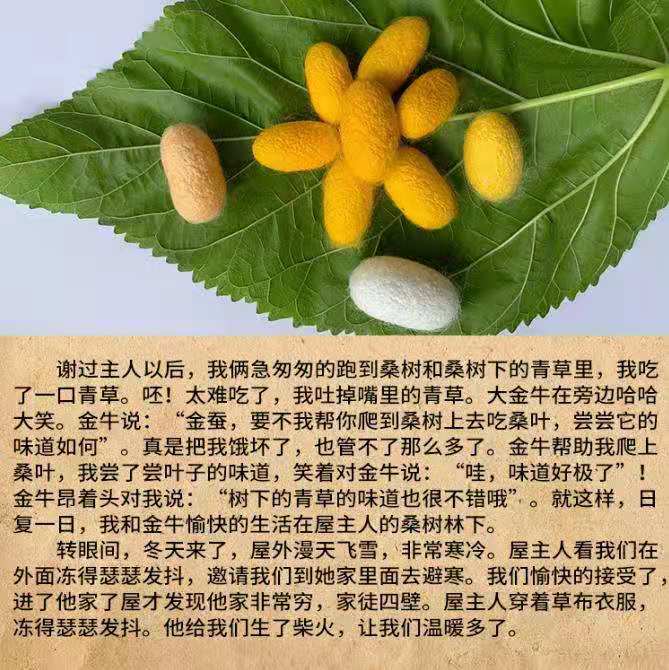 谢过主人以后，我俩急匆匆的跑到桑树和桑树下的青草里，我吃
了一口青草。呸！太难吃了，我吐掉嘴里的青草。大金牛在旁边哈哈
大笑。金牛说：“金蚕，要不我帮你爬到桑树上去吃桑叶，尝尝它的
味道如何”。真是把我饿坏了，也管不了那么多了。金牛帮助我爬上
桑叶，我尝了尝叶子的味道，笑着对金牛说：“哇，味道好极了”！
金牛昂着头对我说：“树下的青草的味道也很不错哦”。就这样，日
复一日，我和金牛愉快的生活在屋主人的桑树林下。
转眼间，冬天来了，屋外漫天飞雪，非常寒冷。屋主人看我们在
外面冻得瑟瑟发抖，邀请我们到她家里面去避寒。我们愉快的接受了，
进了他家了屋才发现他家非常穷，家徒四壁。屋主人穿着草布衣服，
冻得瑟瑟发抖。他给我们生了柴火，让我们温暖多了。